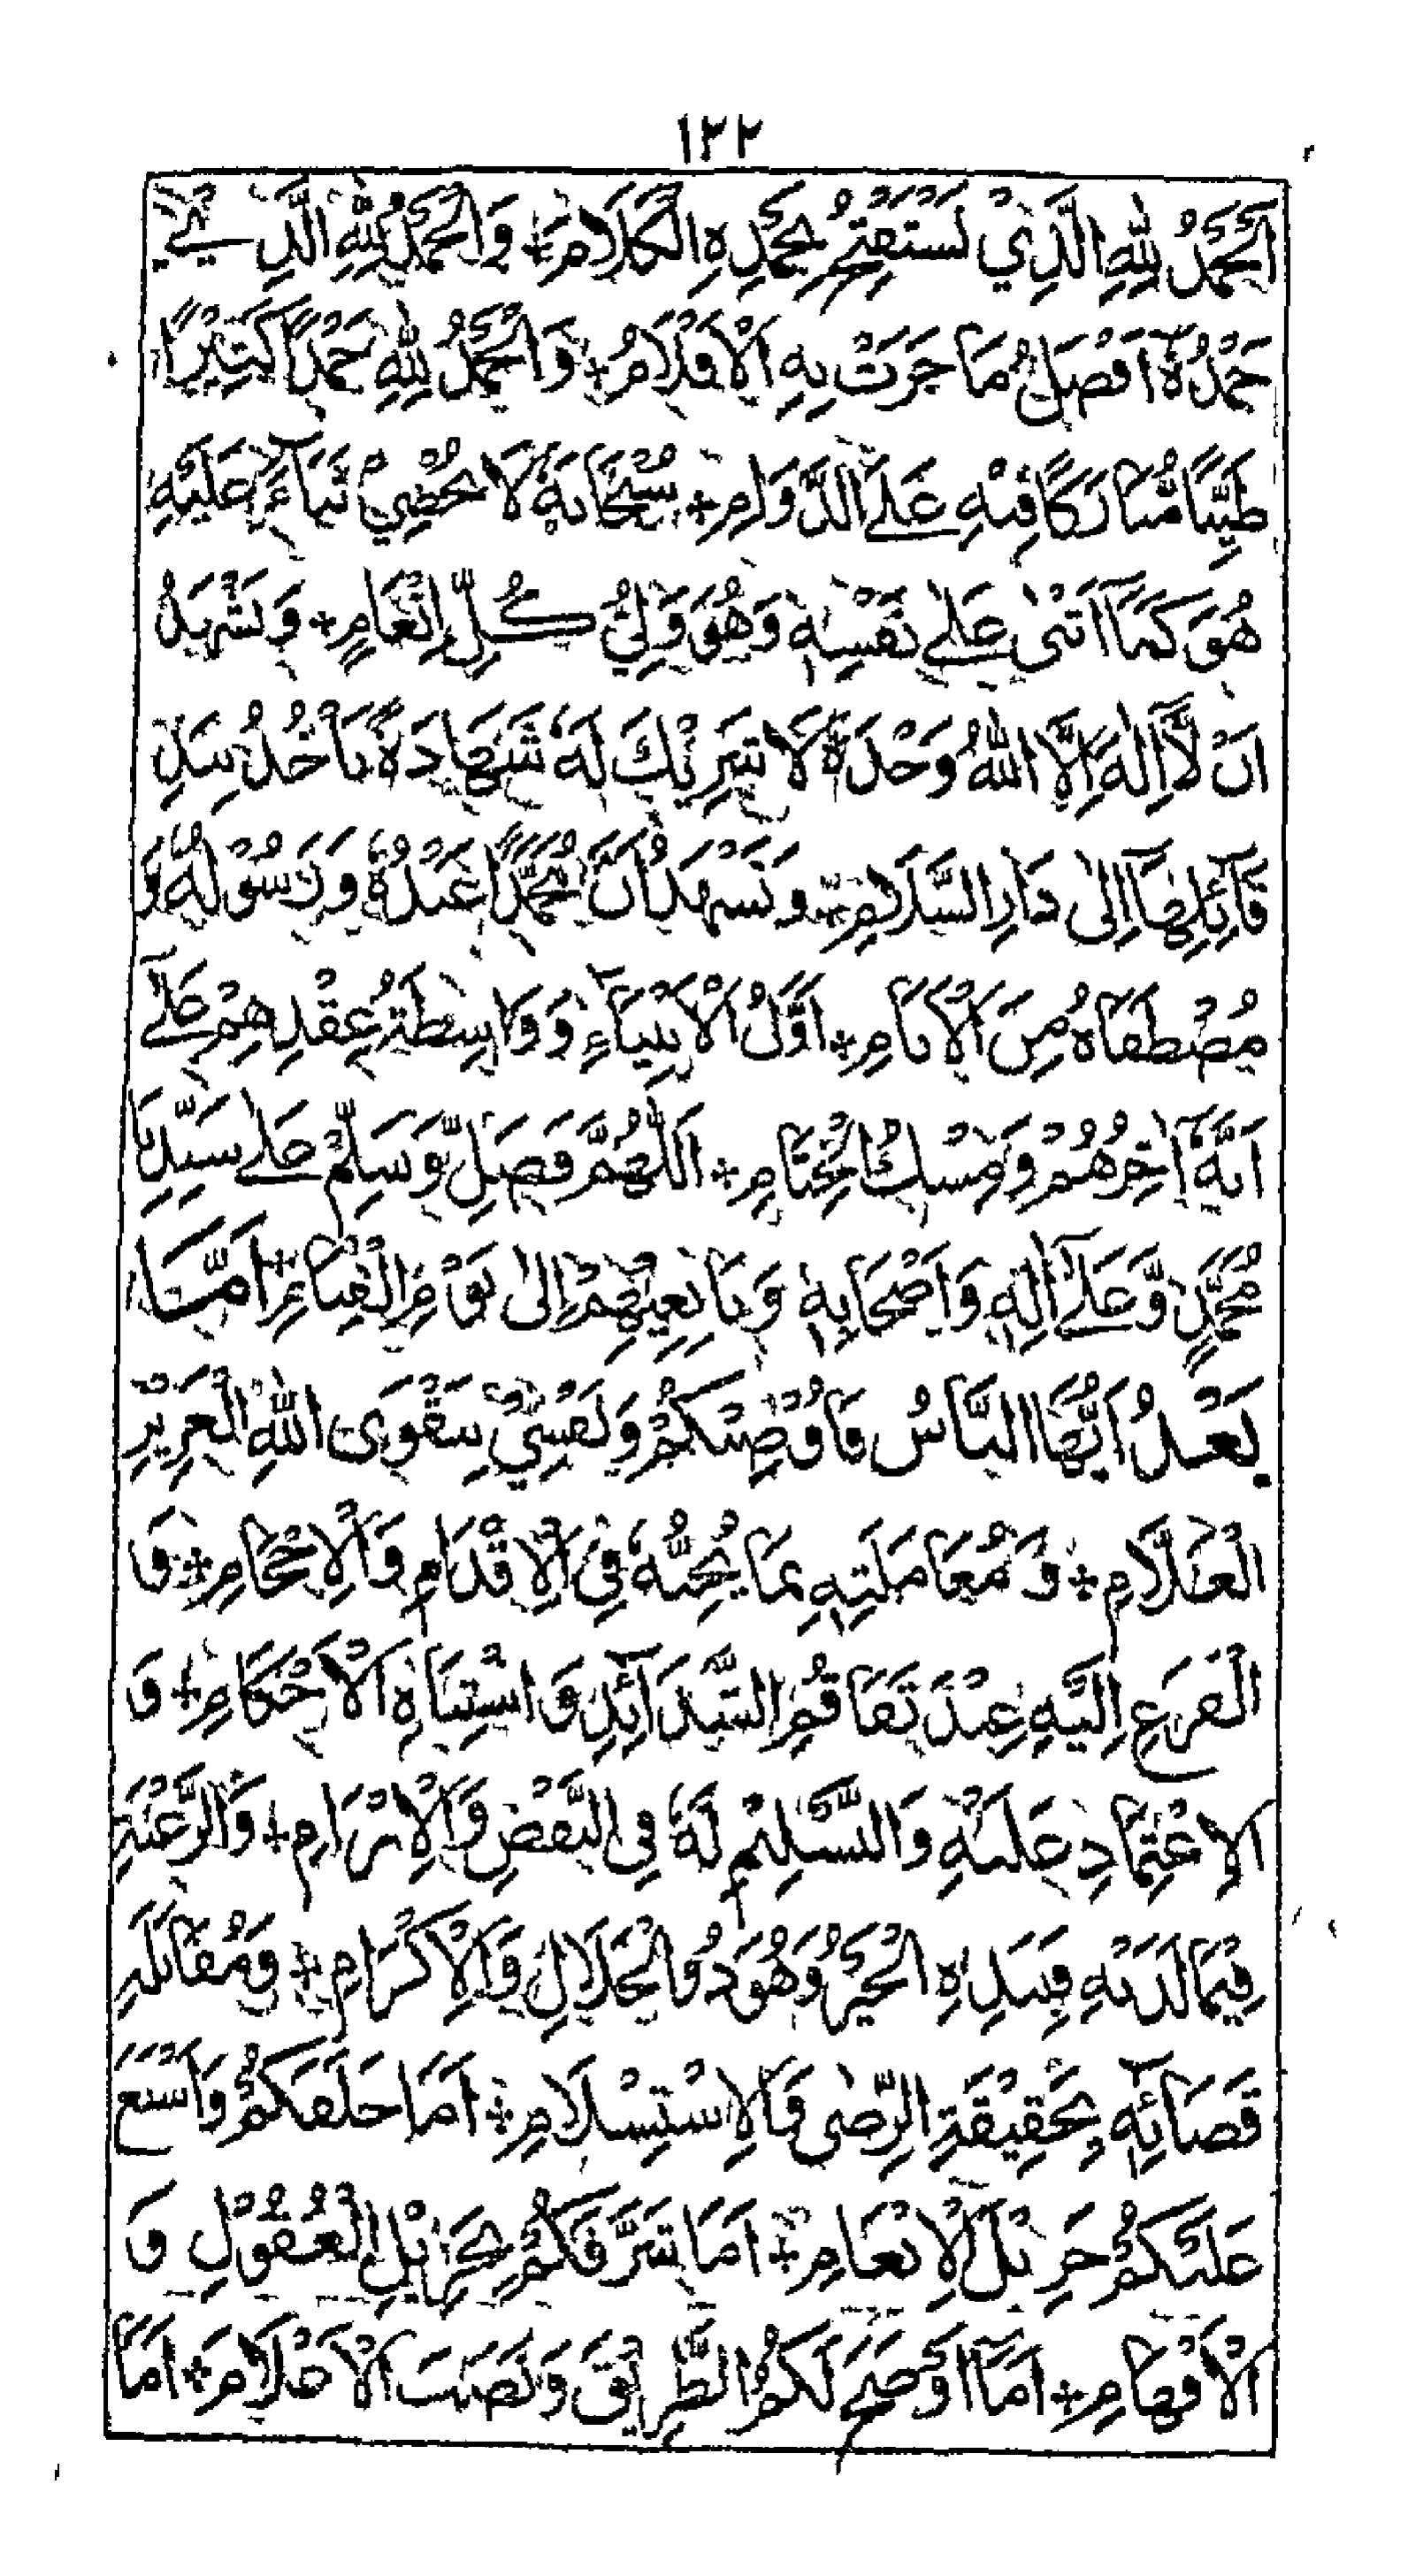 ١٢٢
اَلْحَمْدُ لِلّٰهِ الَّذِيْ نَسْتَفْتِحُ بِحَمْدِهِ الْكَلَامَ + وَالْحَمْدُ لِلّٰهِ الَّذِيْ
حَمْدُهٗ اَفْضَلُ مَا جَرَتْ بِهِ الْاَقْلَامُ + وَالْحَمْدُ لِلّٰهِ حَمْدًا كَثِيْرًا
طَيِّبًا مُّبَارَكًا فِيْهِ عَلَى الدَّوَامِ + سُبْحَانَهٗ لَا نُحْصِيْ ثَنَاءً عَلَيْهِ
هُوَ كَمَا اَثْنٰى عَلٰى نَفْسِهٖ وَهُوَ وَلِيُّ كُلِّ اِنْعَامٍ + وَنَشْهَدُ
اَنْ لَّا اِلٰهَ اِلَّا اللّٰهُ وَحْدَهٗ لَا شَرِيْكَ لَهٗ شَهَادَةً تَاْخُذُ بِيَدِ
قَائِلِهَا اِلٰى دَارِ السَّلَامِ + وَنَشْهَدُ اَنَّ مُحَمَّدًا عَبْدُهٗ وَرَسُوْلُهٗ وَ
مُصْطَفَاهُ مِنَ الْاَنَامِ + اَوَّلُ الْاَنْبِيَاءِ وَوَاسِطَةُ عِقْدِهِمْ عَلٰى
اَنَّهٗ اٰخِرُهُمْ وَمِسْكُ الْخِتَامِ + اَللّٰهُمَّ فَصَلِّ وَسَلِّمْ عَلٰى سَيِّدِنَا
مُحَمَّدٍ وَّعَلٰى اٰلِهٖ وَاَصْحَابِهٖ وَتَابِعِيْهِمْ اِلٰى يَوْمِ الْقِيَامِ + اَمَّا
بَعْدُ اَيُّهَا النَّاسُ فَاُوْصِيْكُمْ وَنَفْسِيْ بِتَقْوَى اللّٰهِ الْعَزِيْزِ
الْعَلَّامِ + وَمُعَامَلَتِهٖ بِمَا يُحِبُّهٗ فِي الْاِقْدَامِ وَالْاِحْجَامِ + وَ
الْفَزَعِ اِلَيْهِ عِنْدَ تَفَاقُمِ الشَّدَائِدِ وَاشْتِبَاهِ الْاَحْكَامِ + وَ
الْاِعْتِمَادِ عَلَيْهِ وَالتَّسْلِيْمِ لَهٗ فِي النَّقْضِ وَالْاِبْرَامِ + وَالرَّغْبَةِ
فِيْمَا لَدَيْهِ فَبِيَدِهِ الْخَيْرُ وَهُوَ ذُو الْجَلَالِ وَالْاِكْرَامِ + وَمُقَابَلَةِ
قَضَائِهٖ بِحَقِيْقَةِ الرِّضٰى وَالْاِسْتِسْلَامِ + اَمَا خَلَقَكُمْ وَاَسْبَغَ
عَلَيْكُمْ جَزِيْلَ الْاِنْعَامِ + اَمَا شَرَّفَكُمْ بِجَزِيْلِ الْعُقُوْلِ وَ
الْاَفْهَامِ + اَمَا اَوْضَحَ لَكُمُ الطَّرِيْقَ وَنَصَبَ الْاَعْلَامَ + اَمَا